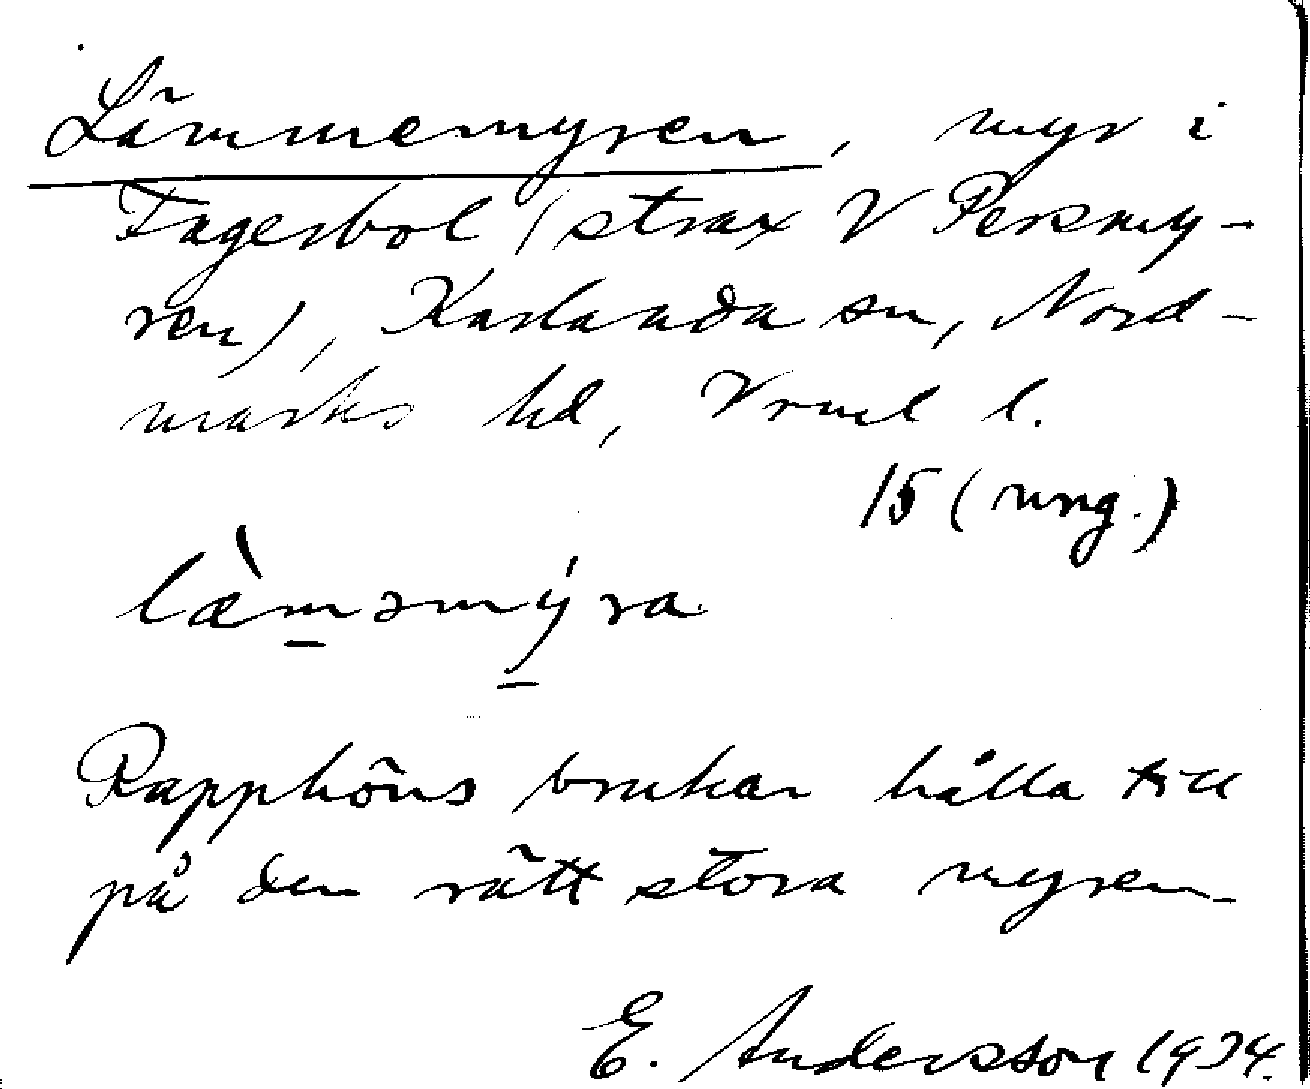 Lämmemyren, myr i
Fagerbol (strax V Persmy-
ren), Karlanda sn, Nord-
marks hd, Vrml l.
15 (ung.)
læ̀məmýra
Rapphöns brukar hålla till
på den rätt stora myren
E. Andersson 1934.